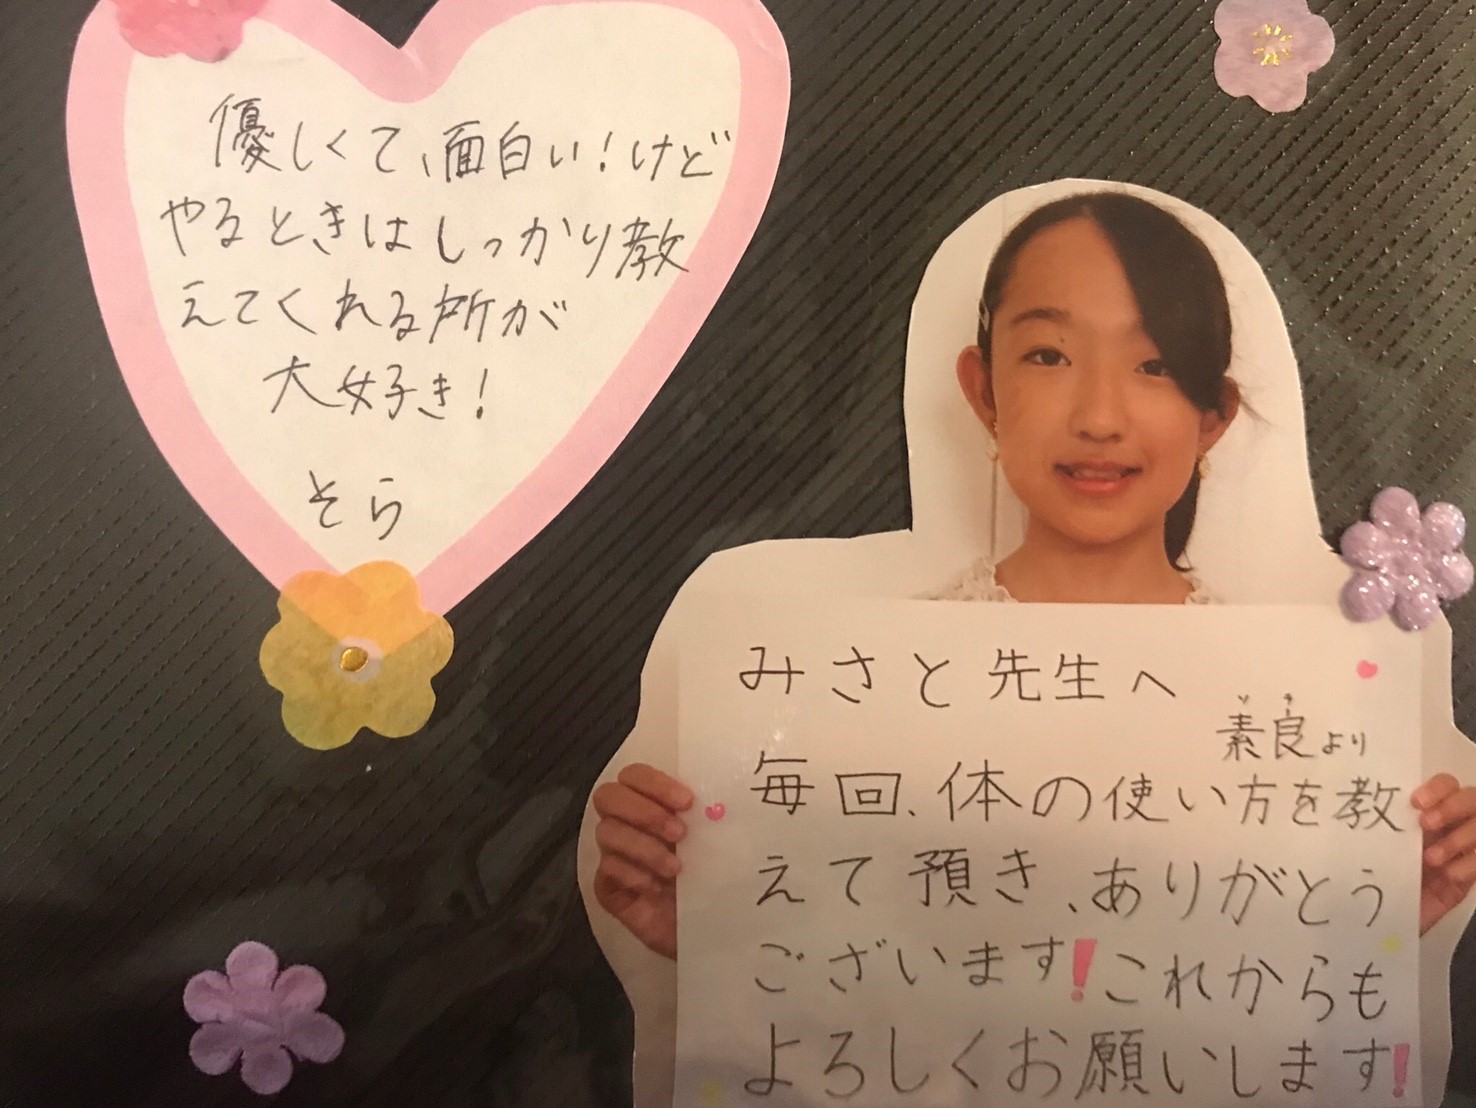 優しくて、面白い！けど
やるときはしっかり教
えてくれる所が
大好き！
そら
みさと先生へ
ソラ
素良より
毎回、体の使い方を教
えて預き、ありがとう
ございます！これからも
よろしくお願いします！